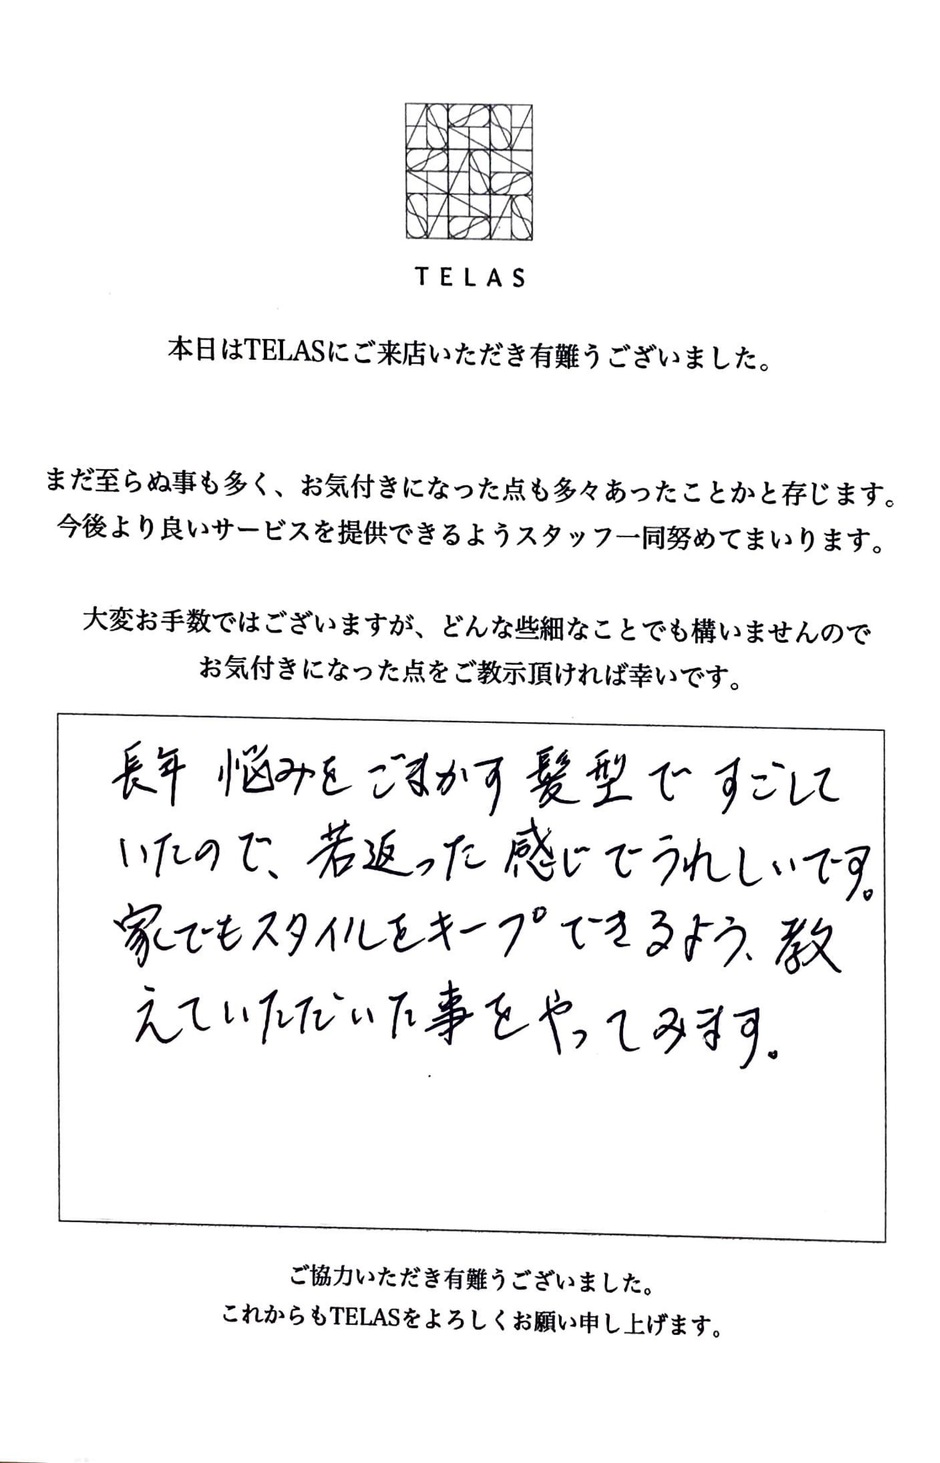 TELAS
本日はTELASにご来店いただき有難うございました。
まだ至らぬ事も多く、お気付きになった点も多々あったことかと存じます。
今後より良いサービスを提供できるようスタッフ一同努めてまいります。
大変お手数ではございますが、どんな些細なことでも構いませんので
お気付きになった点をご教示頂ければ幸いです。
長年 悩みを ごまかす 髪型で すごして
いたので、若返った 感じでうれしいです。
家でもスタイルをキープできるよう、教
えていただいた事をやってみます。
ご協力いただき有難うございました。
これからもTELASをよろしくお願い申し上げます。